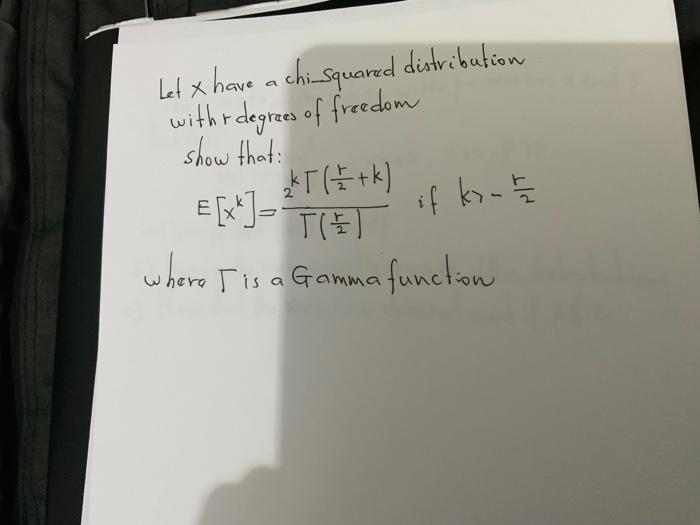 Let x have a chi-squared distribution
with r degrees of freedom
show that:
E[x^k] = 2^k Γ(r/2 + k) / Γ(r/2) if k > - r/2
where Γ is a Gamma function